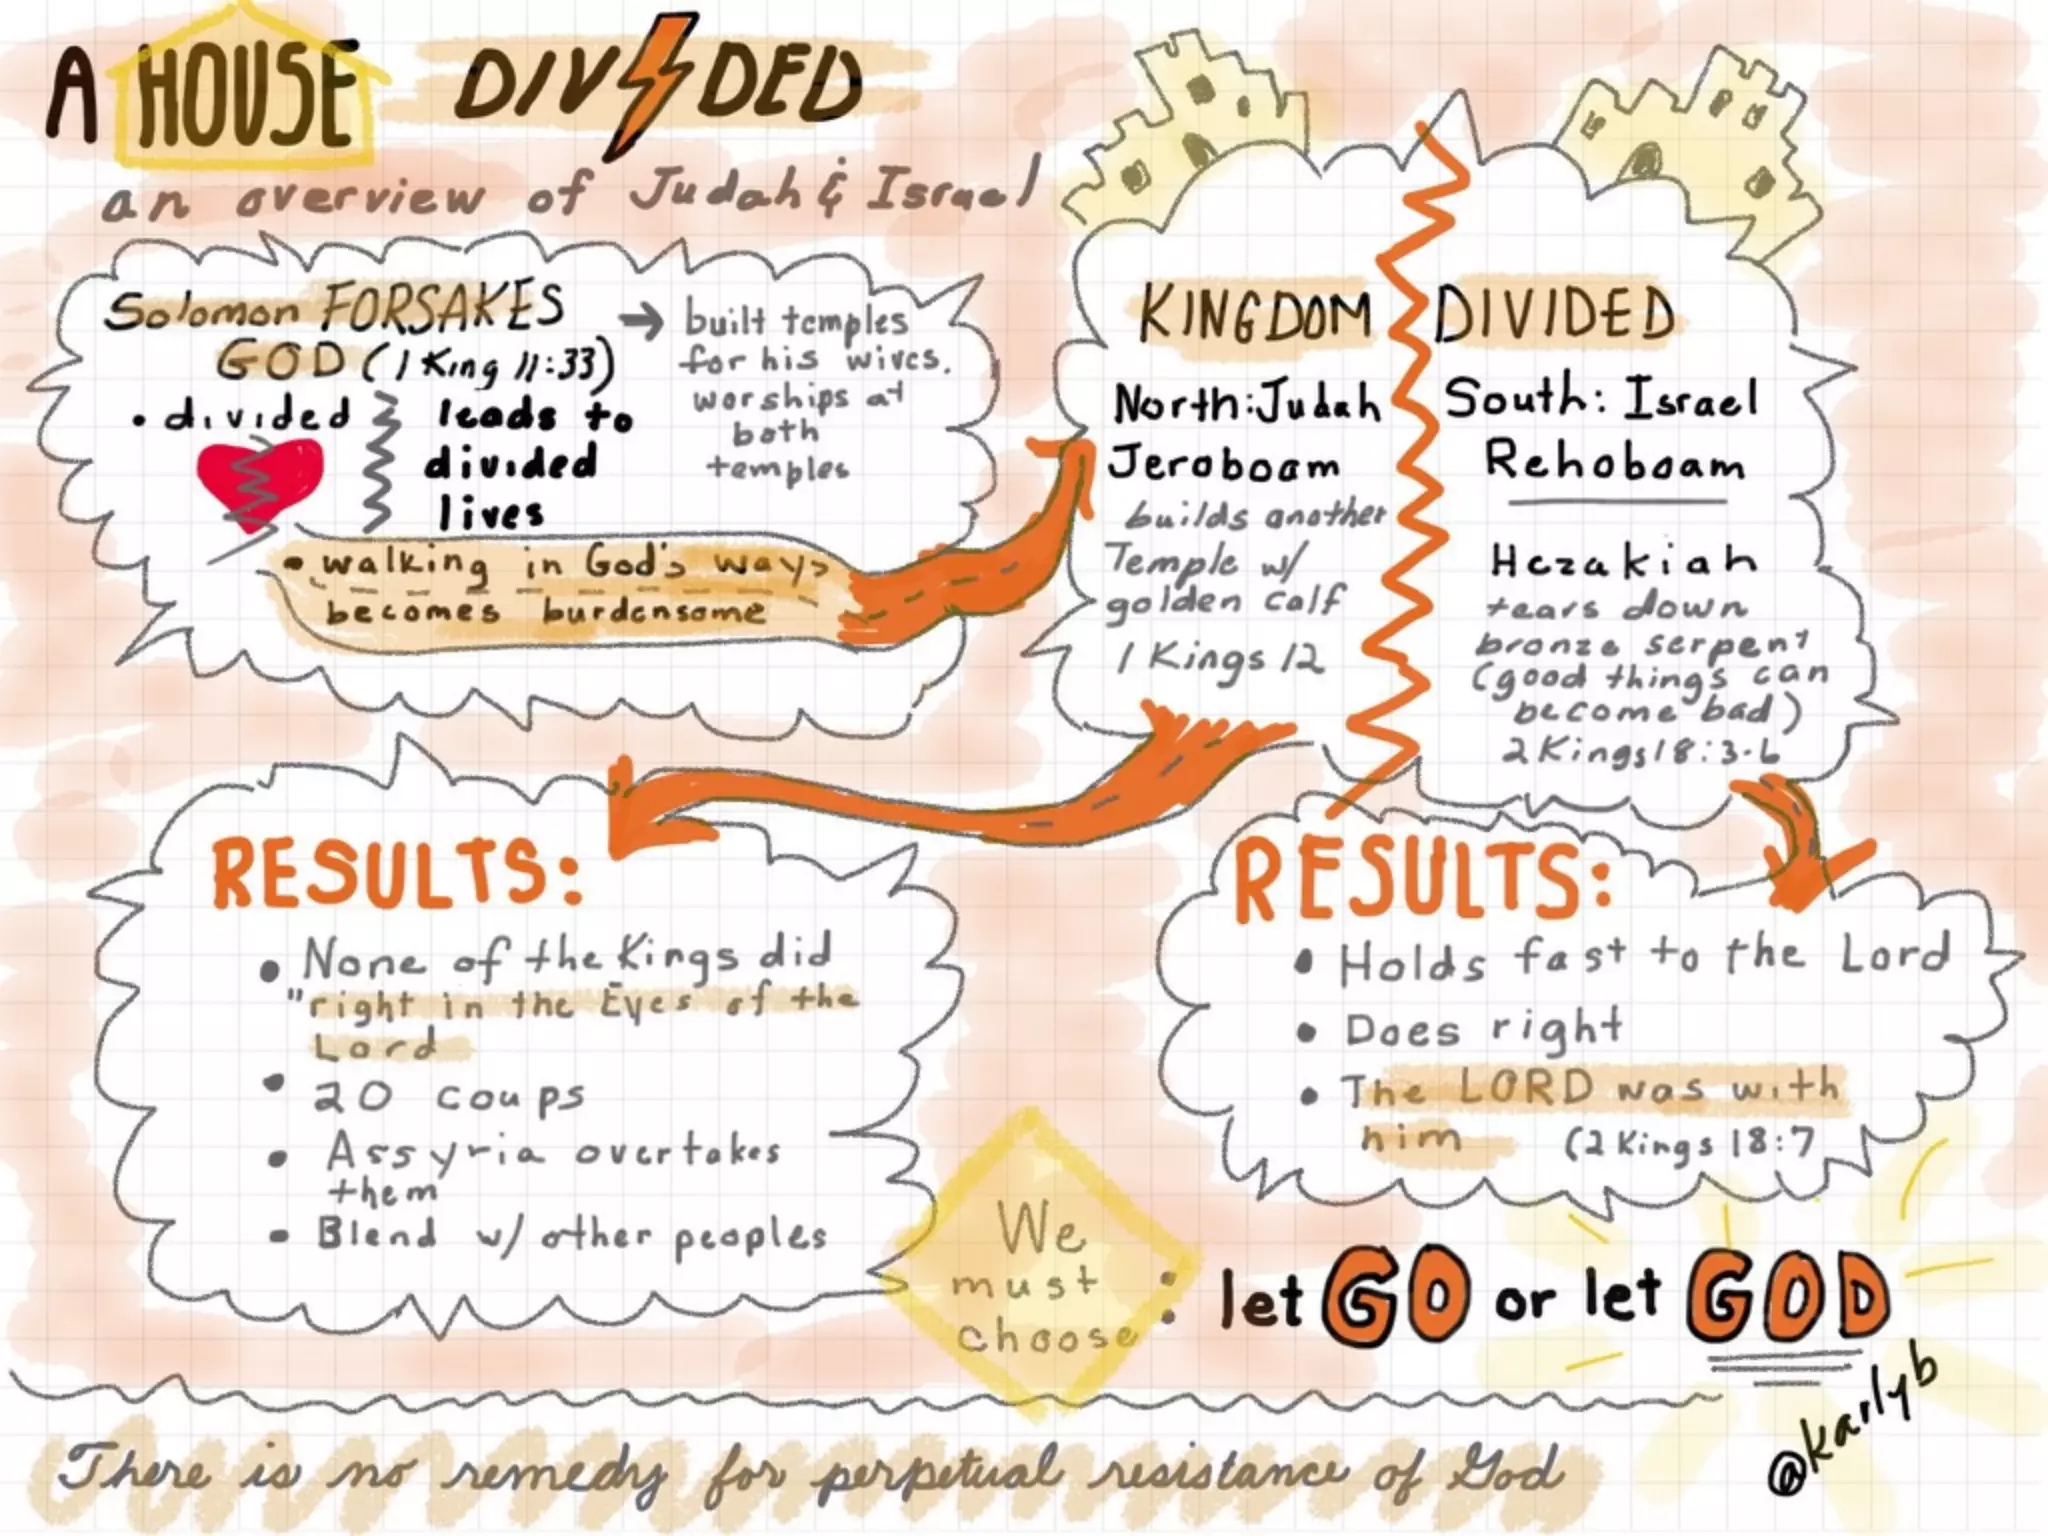 A HOUSE DIVIDED
an overview of Judah & Israel
Solomon FORSAKES
GOD (1 King 11:33)
• divided
leads to
divided
lives
→ built temples
for his wives.
worships at
both
temples
• walking in God's ways
becomes burdensome
KINGDOM DIVIDED
North: Judah
Jeroboam
builds another
Temple w/
golden calf
1 Kings 12
South: Israel
Rehoboam
Hezakiah
tears down
bronze serpent
(good things can
become bad)
2 Kings 18:3-6
RESULTS:
• None of the Kings did
"right in the Eyes of the
Lord
• 20 coups
• Assyria overtakes
them
• Blend w/ other peoples
RESULTS:
• Holds fast to the Lord
• Does right
• The LORD was with
him (2 Kings 18:7
We
must
choose
: let GO or let GOD
@karlyb
There is no remedy for perpetual resistance of God